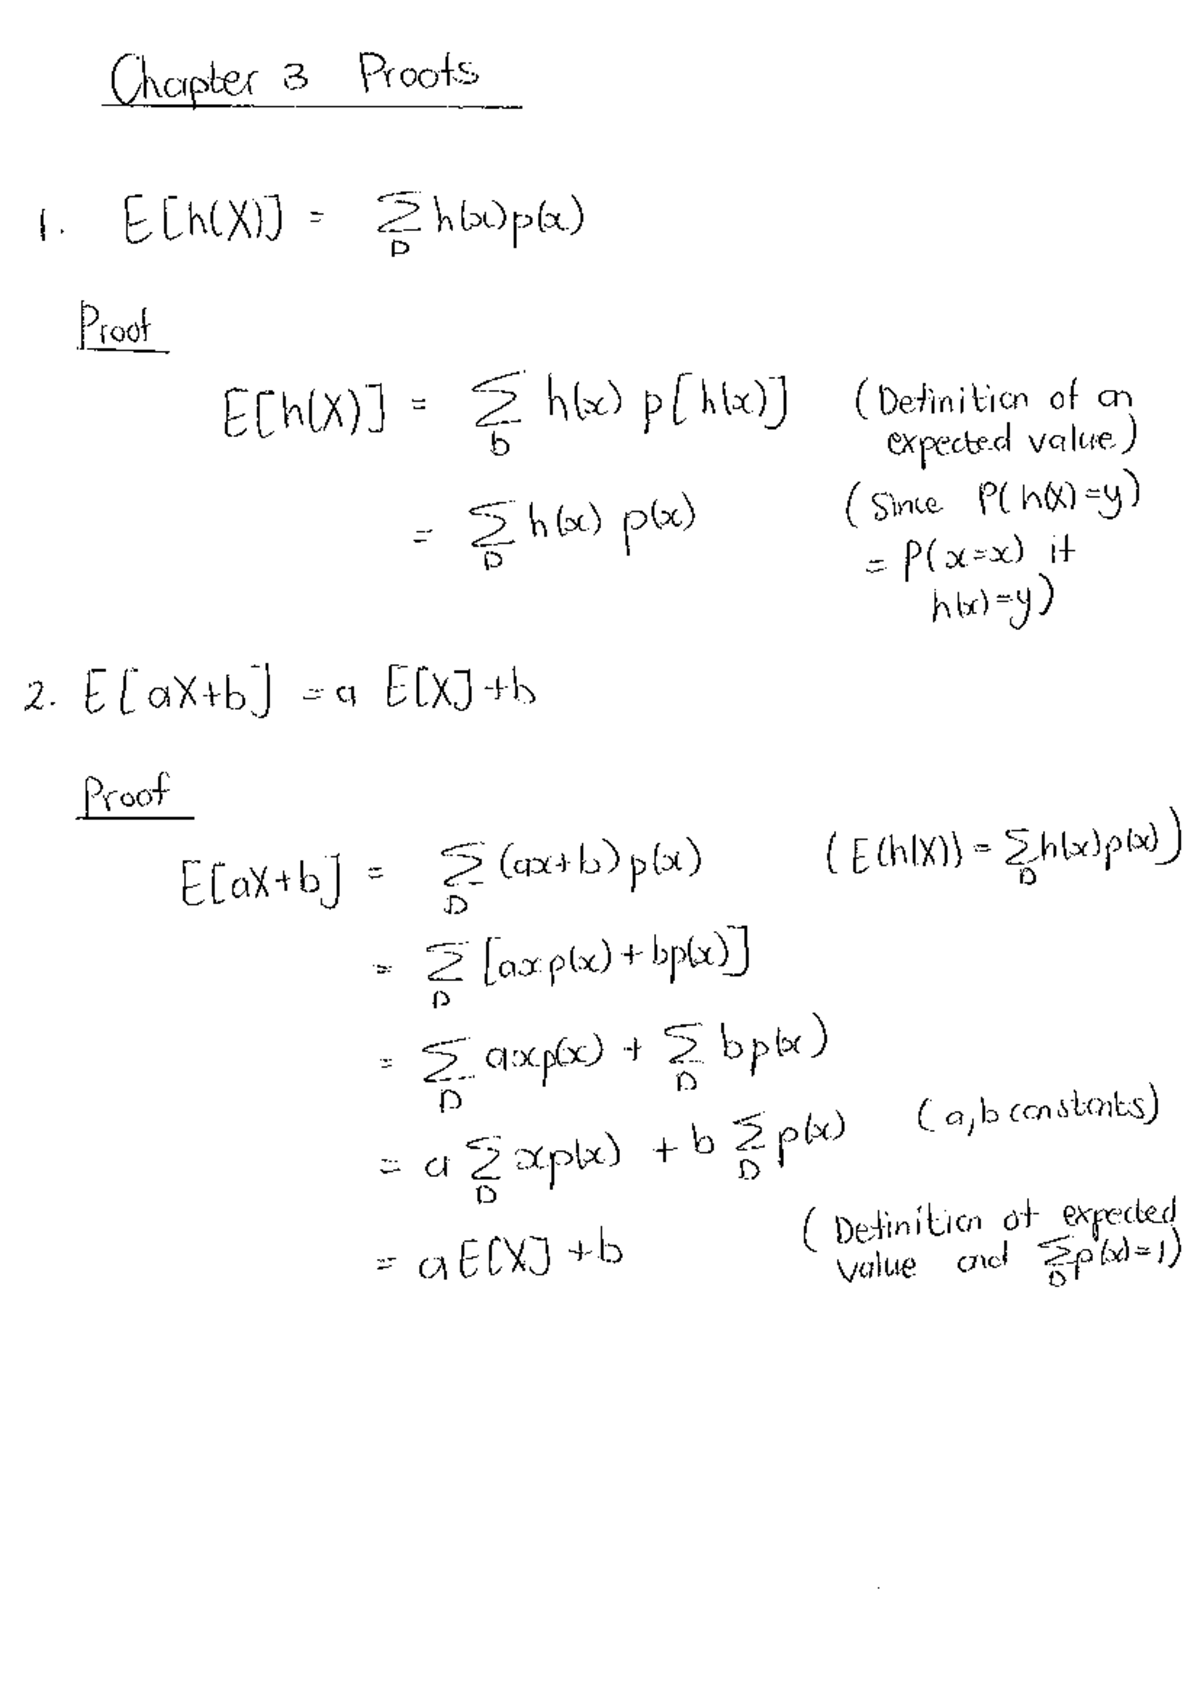 Chapter 3 Proofs
1. E[h(X)] = Σ_D h(x)p(x)
Proof
E[h(X)] = Σ_D h(x) p[h(x)] (Definition of an
expected value)
= Σ_D h(x) p(x) (Since P(h(X)=y)
= P(x=x) if
h(x)=y)
2. E[aX+b] = a E[X]+b
Proof
E[aX+b] = Σ_D (ax+b)p(x) (E(h(X)) = Σ_D h(x)p(x))
= Σ_D [axp(x)+bp(x)]
= Σ_D axp(x) + Σ_D bp(x)
= a Σ_D xp(x) + b Σ_D p(x) (a,b constants)
= aE[X]+b (Definition of expected
value and Σ_D p(x)=1)